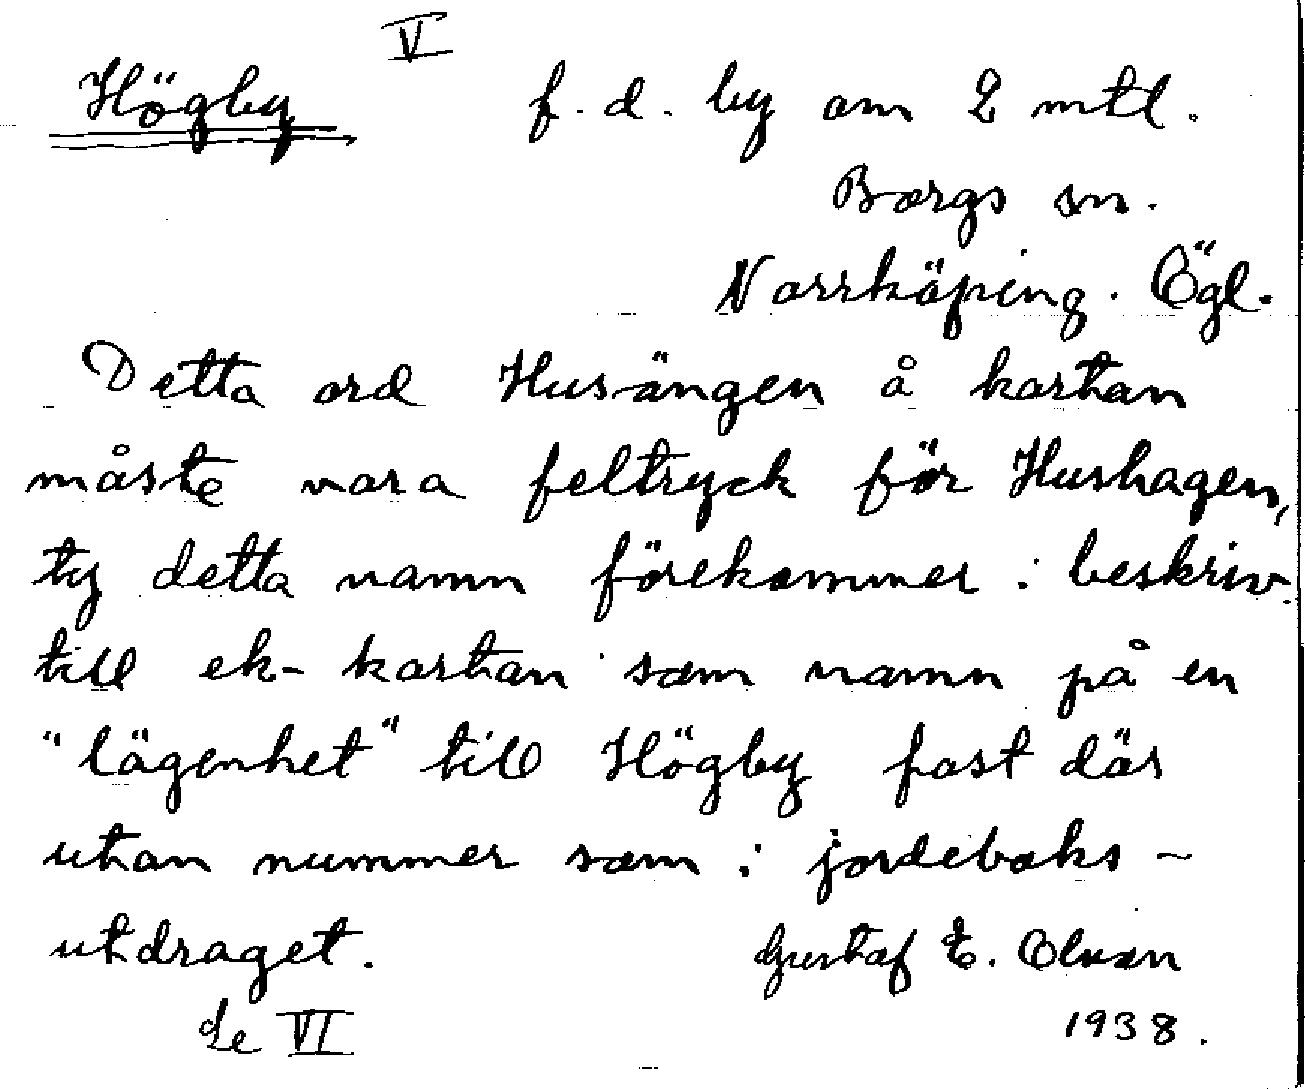 V
Högby f.d. by om 2 mtl.
Borgs sn.
Norrköping. Ögl.
Detta ord Husängen å kartan
måste vara feltryck för Hushagen,
ty detta namn förekommer i beskriv.
till ek-kartan som namn på en
"lägenhet" till Högby fast där
utan nummer som i jordeboks-
utdraget. Gustaf E. Olsson
Se VI 1938.